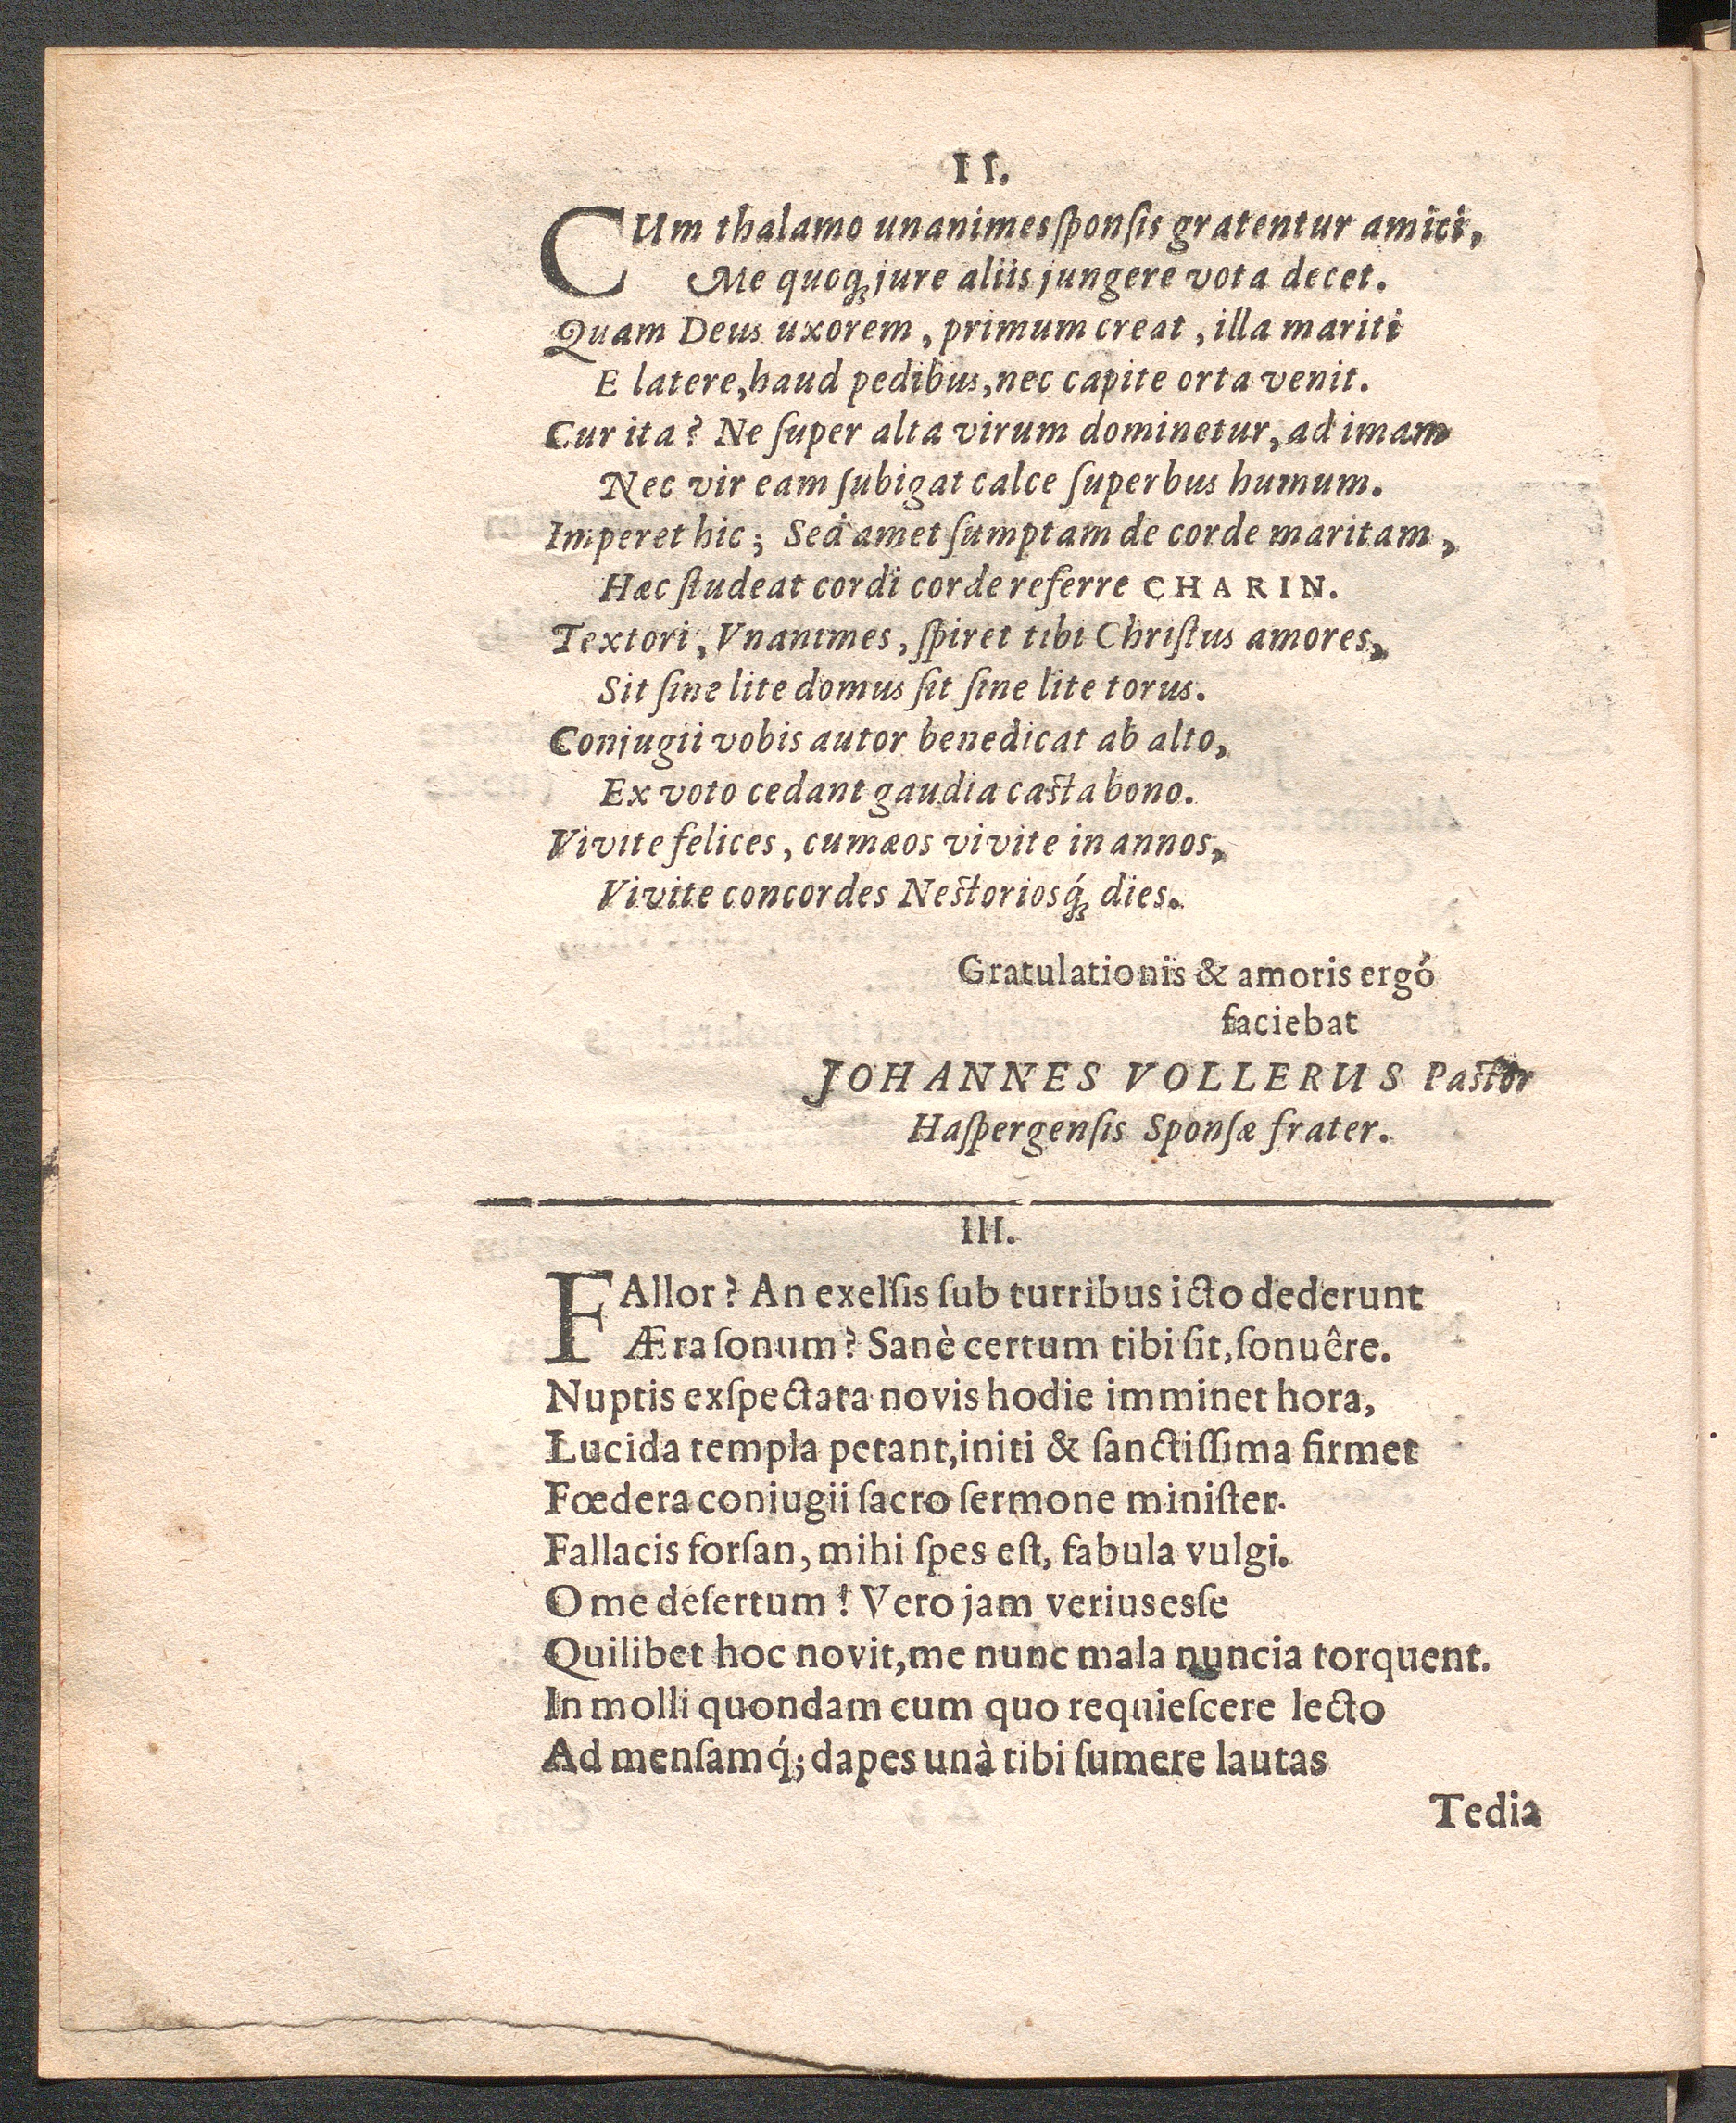 II.
CUm thalamo unanimes ſponſis gratentur amici,
Me quoq́ꝫ jure aliis jungere vota decet.
Quam Deus uxorem, primum creat, illa mariti
E latere, haud pedibus, nec capite orta venit.
Cur ita? Ne ſuper alta virum dominetur, ad imam
Nec vir eam ſubigat calce ſuperbus humum.
Imperet hic; Sed amet ſumptam de corde maritam,
Hæc ſtudeat cordi corde referre CHARIN.
Textori, Vnanimes, ſpiret tibi Chriſtus amores,
Sit ſine lite domus ſit ſine lite torus.
Conjugii vobis autor benedicat ab alto,
Ex voto cedant gaudia caſta bono.
Vivite felices, cumæos vivite in annos,
Vivite concordes Neſtoriosq́ꝫ dies.
Gratulationis & amoris ergó
faciebat
JOHANNES VOLLERUS Paſtor
Haſpergenſis Sponſæ frater.
III.
FAllor? An exelſis ſub turribus icto dederunt
Æra ſonum? Sanè certum tibi ſit, ſonuêre.
Nuptis exſpectata novis hodie imminet hora,
Lucida templa petant, initi & ſanctiſſima firmet
Fœdera coniugii ſacro ſermone miniſter.
Fallacis forſan, mihi ſpes eſt, fabula vulgi.
O me deſertum! Vero jam verius esſe
Quilibet hoc novit, me nunc mala nuncia torquent.
In molli quondam cum quo requieſcere lecto
Ad menſamq́; dapes unà tibi ſumere lautas
Tedia